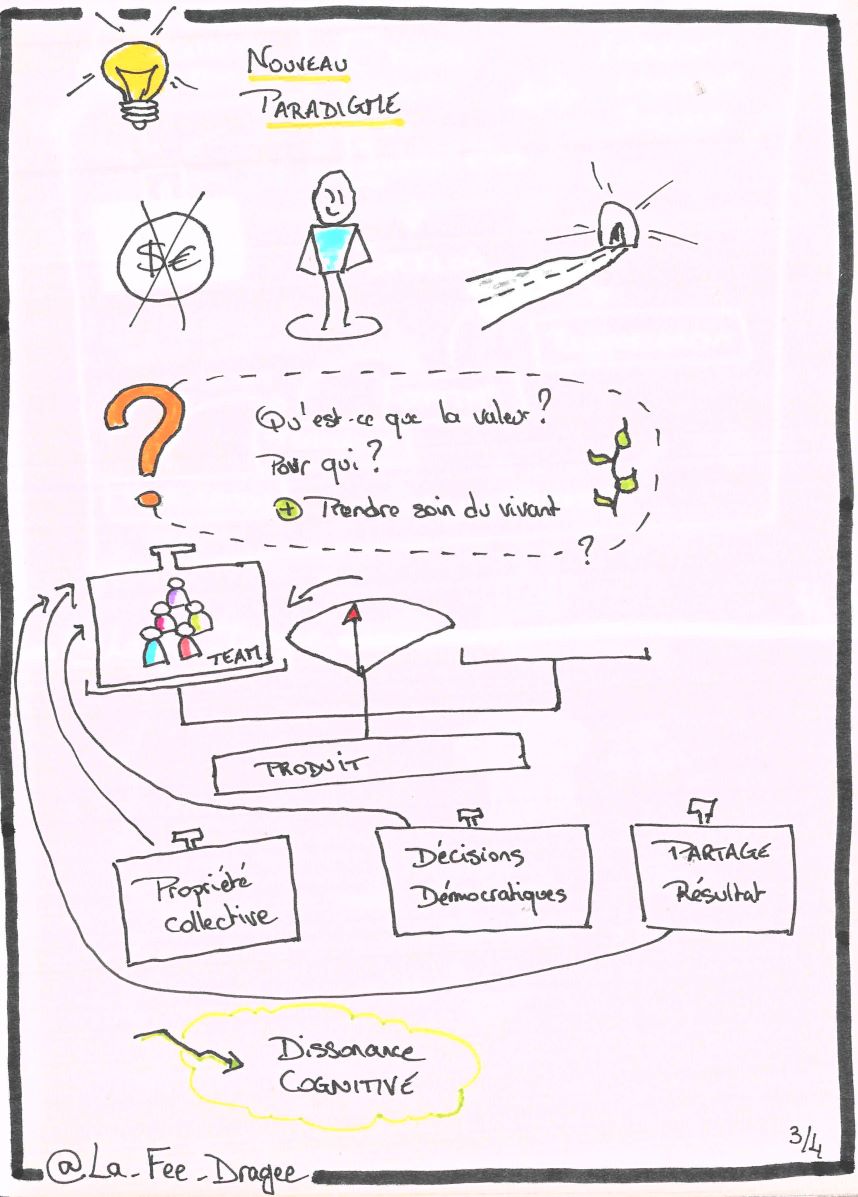 NOUVEAU
PARADIGME
$ €
?
Qu'est-ce que la valeur?
Pour qui?
+ Prendre soin du vivant
?
TEAM
PRODUIT
Propriété
collective
Décisions
Démocratiques
PARTAGE
Résultat
Dissonance
COGNITIVE
3/4
@La_Fee_Dragee